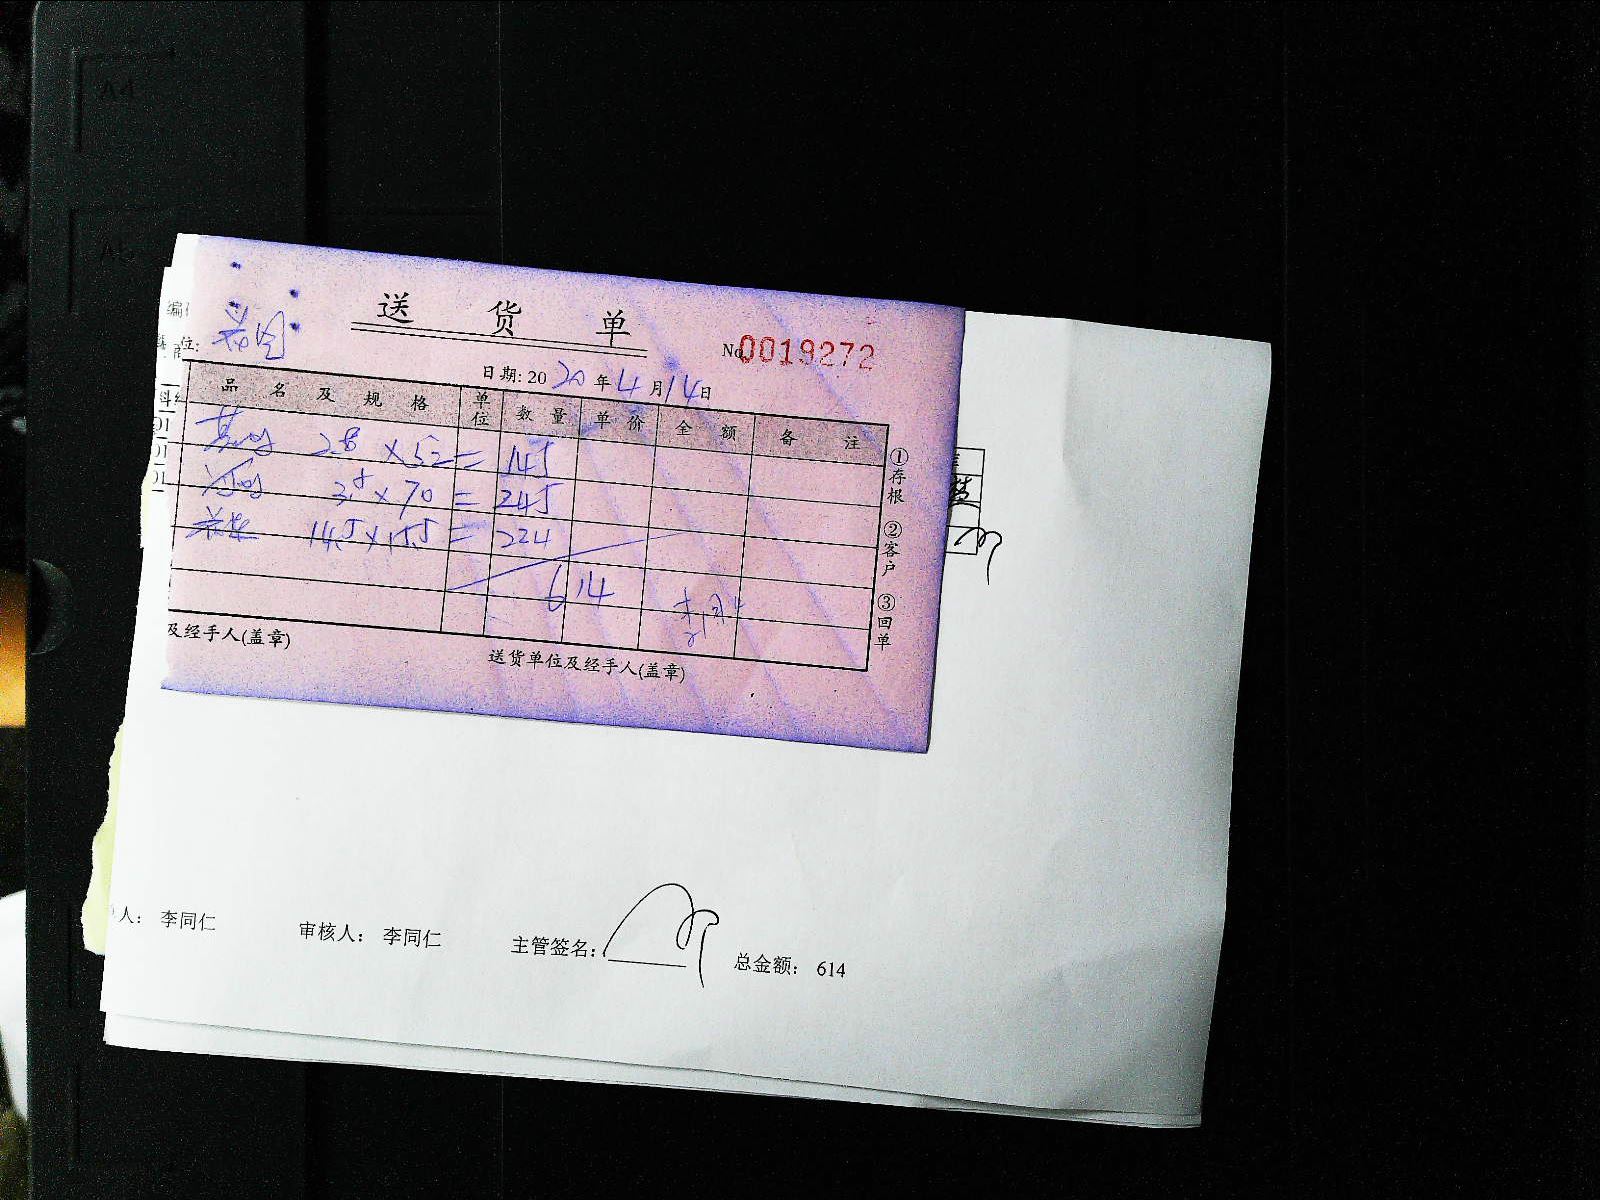 A4
A5
送货单
位:
No 0019272
日期: 2020年4月14日
品名及规格 单位 数量 单价 金额 备注
28 × 52 = 145
3.5 × 70 = 245
14.5 × 15.5 = 224
614
①存根 ②客户 ③回单
及经手人(盖章) 送货单位及经手人(盖章)
人： 李同仁 审核人： 李同仁 主管签名： 总金额： 614